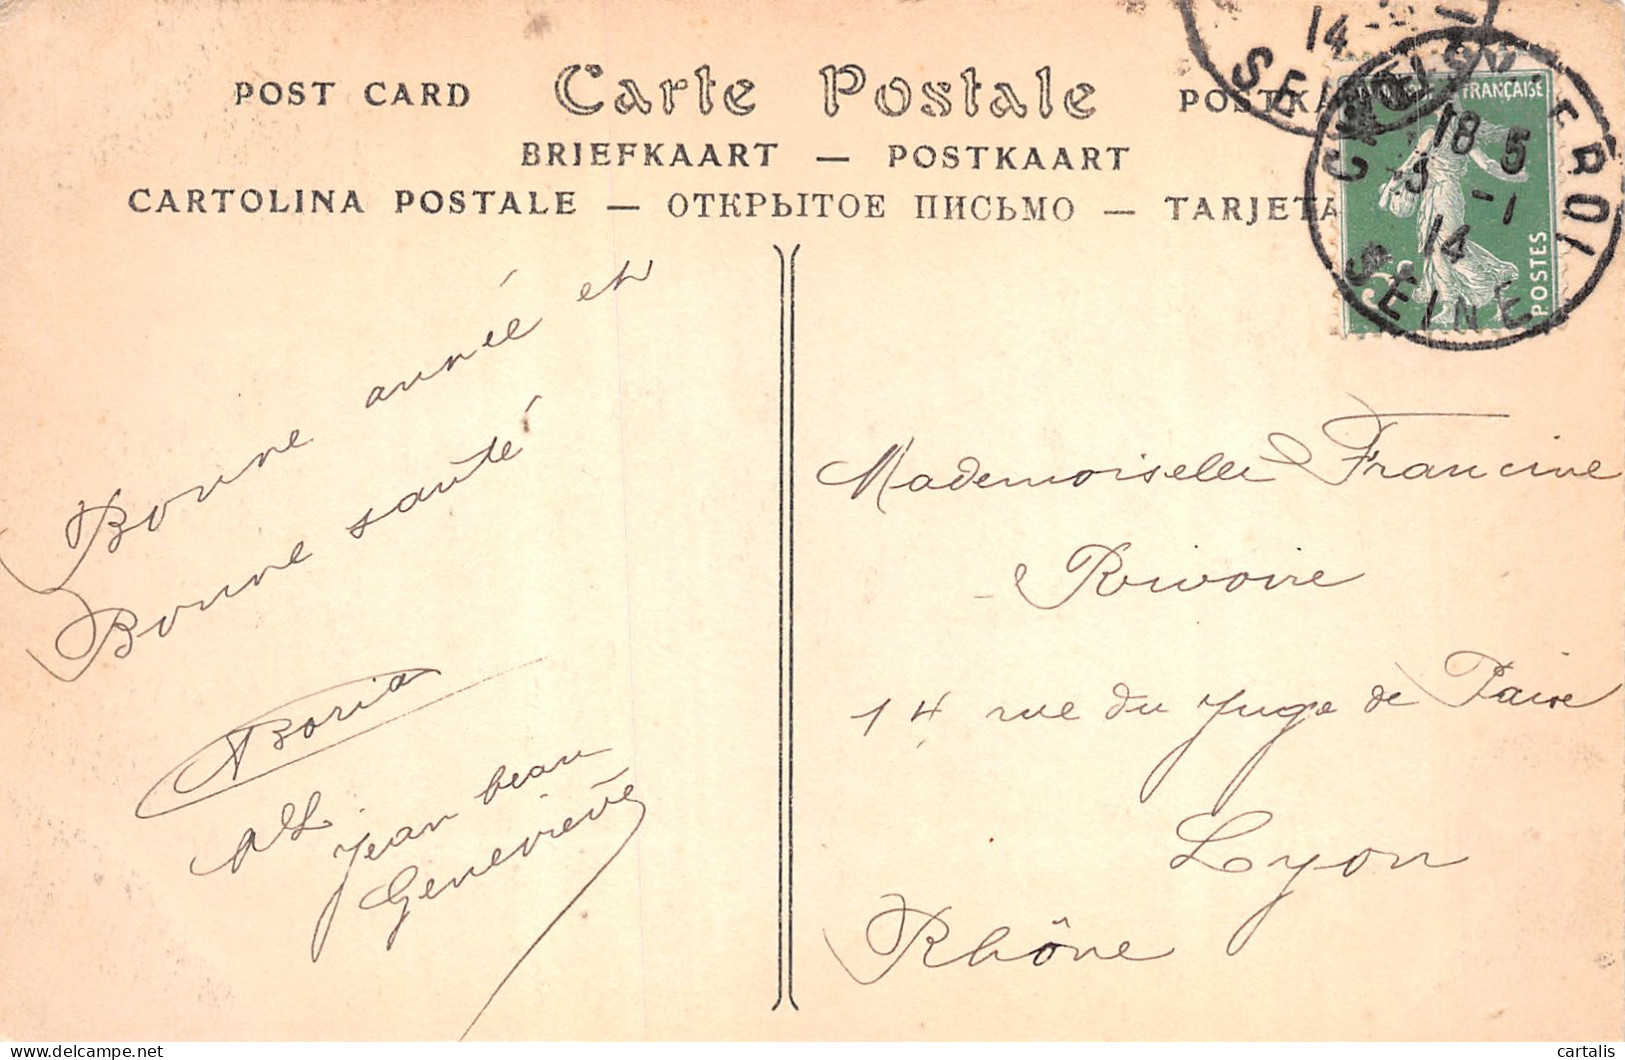 POST CARD Carte Postale POSTKA
BRIEFKAART — POSTKAART
CARTOLINA POSTALE — ОТКРЫТОЕ ПИСЬМО — TARJETA
14
SEINE
FRANÇAISE
CHOISY LE ROI
18 5
-3 -1
14
SEINE
5c
POSTES
Bonne année et
Bonne santé
Jean beau
Geneviève
Mademoiselle Francine
Rivoire
14 rue du Juge de Paix
Lyon
Rhône
delcampe.net
cartalis